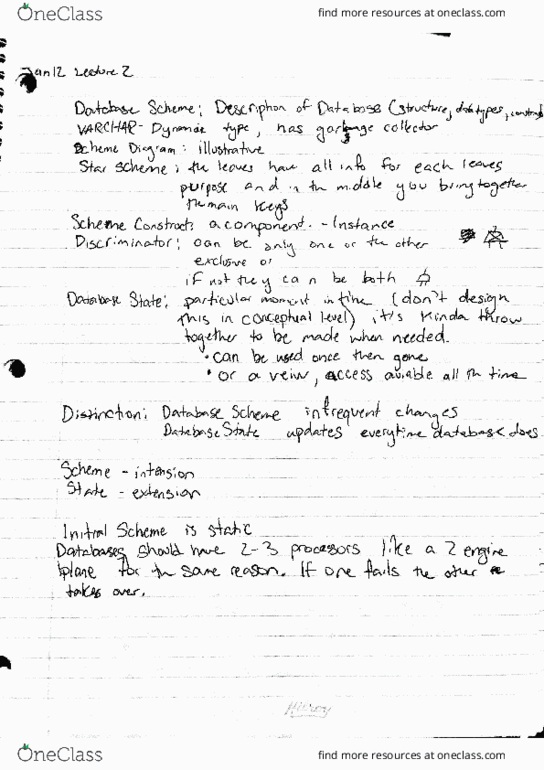 OneClass
find more resources at oneclass.com
Jan 12 Lecture 2
Database Scheme: Description of Database (structure, data types, constraints
VARCHAR - Dynamic type, has garbage collector
Scheme Diagram: illustrative
Star scheme: the leaves have all info for each leaves
purpose and in the middle you bring together
the main keys
Scheme Construct: a component. - Instance
Discriminator: can be only one or the other
exclusive or
if not they can be both
Database State: particular moment in time (don't design
this in conceptual level) it's kinda throw
together to be made when needed.
• can be used once then gone
• or a veiw, access aviable all the time
Distinction: Database Scheme infrequent changes
Database State updates everytime database does
Scheme - intension
State - extension
Initial Scheme is static
Databases should have 2-3 processors like a 2 engine
plane for the same reason. If one fails the other
takes over.
OneClass
find more resources at oneclass.com